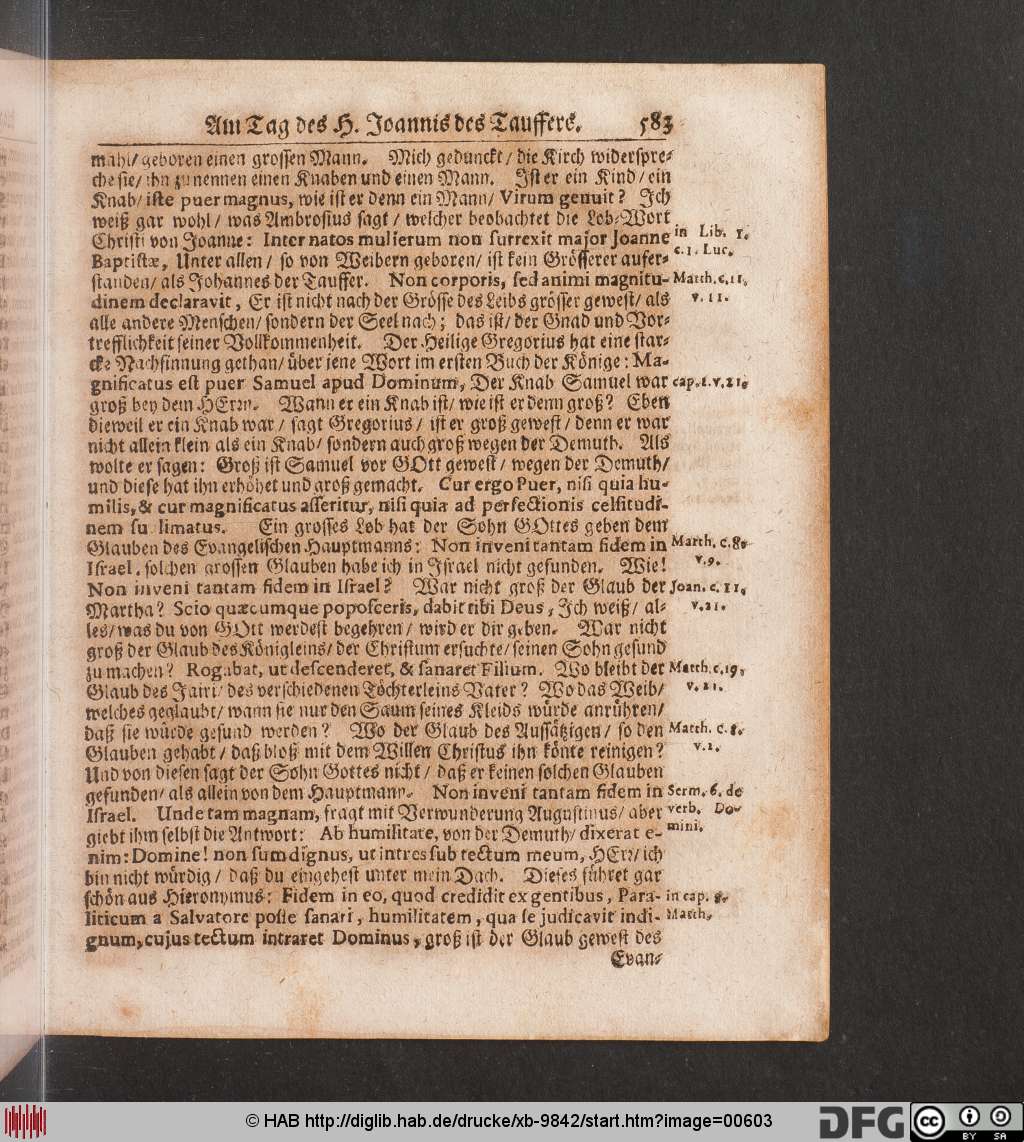 Am Tag des H. Joannis des Tauffers. 583
mahl/ geboren einen grossen Mann. Mich gedunckt/ die Kirch widerspre-
che sie/ ihn zu nennen einen Knaben und einen Mann. Ist er ein Kind/ ein
Knab/ iste puer magnus, wie ist er denn ein Mann/ Virum genuit? Ich
weiß gar wohl/ was Ambrosius sagt/ welcher beobachtet die Lob-Wort
Christi von Joanne: Inter natos mulierum non surrexit major Joanne
in Lib. 1.
c. 1. Luc.
Baptistæ, Unter allen/ so von Weibern geboren/ ist kein Grösserer aufer-
standen/ als Johannes der Tauffer. Non corporis, sed animi magnitu-
Matth. c. 11.
v. 11.
dinem declaravit, Er ist nicht nach der Grösse des Leibs grösser gewest/ als
alle andere Menschen/ sondern der Seel nach; das ist/ der Gnad und Vor-
trefflichkeit seiner Vollkommenheit. Der Heilige Gregorius hat eine star-
cke Nachsinnung gethan/ über jene Wort im ersten Buch der Könige: Ma-
gnificatus est puer Samuel apud Dominum, Der Knab Samuel war
cap. 1. v. 21.
groß bey dem HErrn. Wann er ein Knab ist/ wie ist er denn groß? Eben
dieweil er ein Knab war/ sagt Gregorius/ ist er groß gewest/ denn er war
nicht allein klein als ein Knab/ sondern auch groß wegen der Demuth. Als
wolte er sagen: Groß ist Samuel vor GOtt gewest/ wegen der Demuth/
und diese hat ihn erhöhet und groß gemacht. Cur ergo Puer, nisi quia hu-
milis, & cur magnificatus asseritur, nisi quia ad perfectionis celsitudi-
nem su limatus. Ein grosses Lob hat der Sohn GOttes geben dem
Glauben des Evangelischen Hauptmanns: Non inveni tantam fidem in
Matth. c. 8.
v. 9.
Israel, solchen grossen Glauben habe ich in Israel nicht gefunden. Wie!
Non inveni tantam fidem in Israel? War nicht groß der Glaub der
Joan. c. 11.
v. 21.
Martha? Scio quæcumque poposceris, dabit tibi Deus, Ich weiß/ al-
les/ was du von GOtt werdest begehren/ wird er dir geben. War nicht
groß der Glaub des Königleins/ der Christum ersuchte/ seinen Sohn gesund
zu machen? Rogabat, ut descenderet, & sanaret Filium. Wo bleibt der
Matth. c. 19.
v. 21.
Glaub des Jairi/ des verschiedenen Töchterleins Vater? Wo das Weib/
welches geglaubt/ wann sie nur den Saum seines Kleids würde anrühren/
daß sie würde gesund werden? Wo der Glaub des Aussätzigen/ so den
Matth. c. 8.
v. 2.
Glauben gehabt/ daß bloß mit dem Willen Christus ihn könte reinigen?
Und von diesen sagt der Sohn Gottes nicht/ daß er keinen solchen Glauben
gefunden/ als allein von dem Hauptmann. Non inveni tantam fidem in
Serm. 6. de
verb. Do-
mini.
Israel. Unde tam magnam, fragt mit Verwunderung Augustinus/ aber
giebt ihm selbst die Antwort: Ab humilitate, von der Demuth/ dixerat e-
nim: Domine! non sum dignus, ut intres sub tectum meum, HErr/ ich
bin nicht würdig/ daß du eingehest unter mein Dach. Dieses führet gar
schön aus Hieronymus: Fidem in eo, quod credidit ex gentibus, Para-
in cap. 8.
Matth.
liticum a Salvatore posse sanari, humilitatem, qua se judicavit indi-
gnum, cujus tectum intraret Dominus, groß ist der Glaub gewest des
Evan-
© HAB http://diglib.hab.de/drucke/xb-9842/start.htm?image=00603
DFG
cc
BY SA